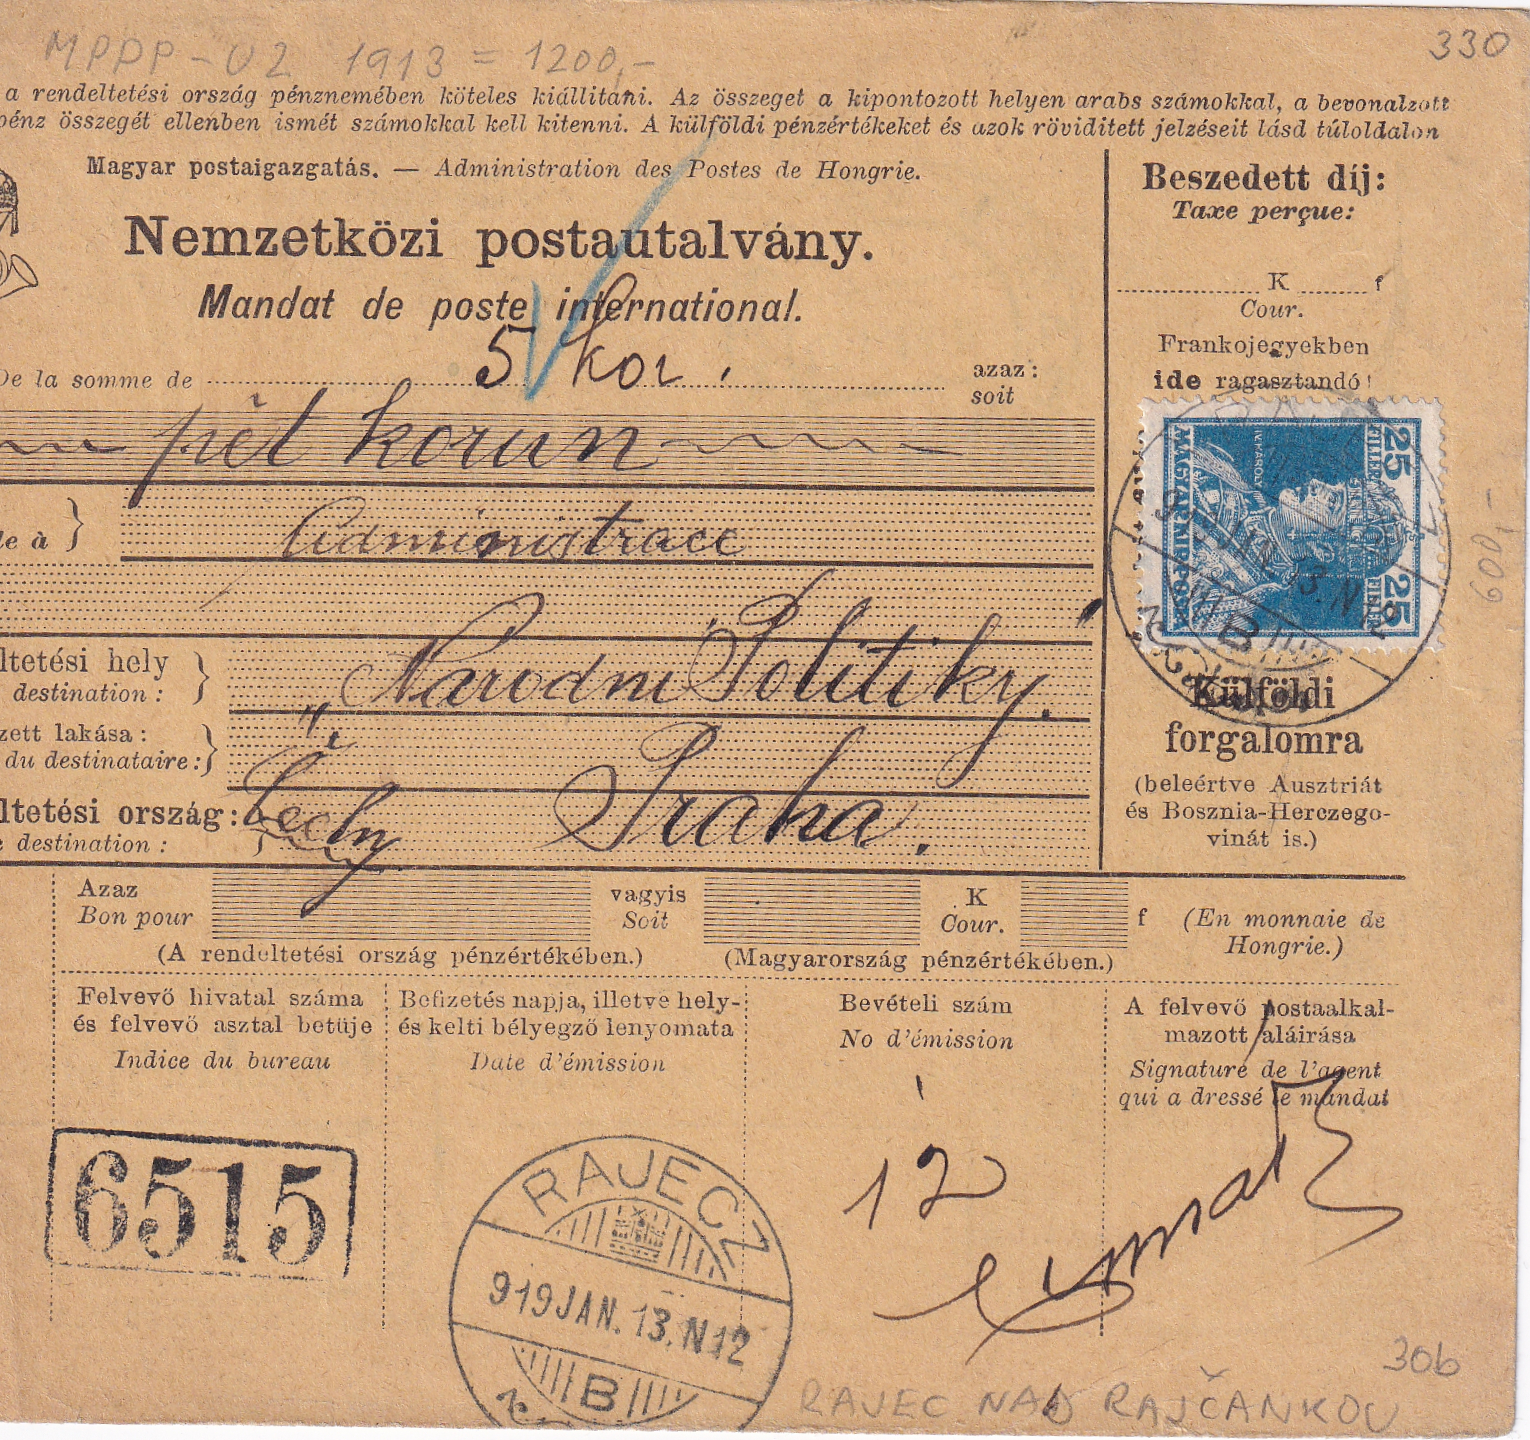 MPPP-U2 1913 = 1200,-
330
a rendeltetési ország pénznemében köteles kiállitani. Az összeget a kipontozott helyen arabs számokkal, a bevonalzott
pénz összegét ellenben ismét számokkal kell kitenni. A külföldi pénzértékeket és azok röviditett jelzéseit lásd túloldalon
Magyar postaigazgatás. — Administration des Postes de Hongrie.
Nemzetközi postautalvány.
Mandat de poste international.
De la somme de 5 kor. azaz:
soit
pět korun
de à } Administrace
„Národní Politiky"
ltetési hely
destination: }
zett lakása:
du destinataire: }
ltetési ország: Čechy Praha.
destination: }
Beszedett díj:
Taxe perçue:
K f
Cour.
Frankojegyekben
ide ragasztandó!
25 FILLÉR
MAGYAR KIR. POSTA
25 FILLÉR
919 JAN. 13. N 12
B
600,-
Külföldi
forgalomra
(beleértve Ausztriát
és Bosznia-Herczego-
vinát is.)
Azaz vagyis K f (En monnaie de
Bon pour Soit Cour. Hongrie.)
(A rendeltetési ország pénzértékében.) (Magyarország pénzértékében.)
Felvevő hivatal száma
és felvevő asztal betüje
Indice du bureau
6515
Befizetés napja, illetve hely-
és kelti bélyegző lenyomata
Date d'émission
RAJECZ
919 JAN. 13. N 12
B
Bevételi szám
No d'émission
12
A felvevő postaalkal-
mazott aláirása
Signature de l'agent
qui a dressé le mandat
30b
RAJEC NAD RAJČANKOU